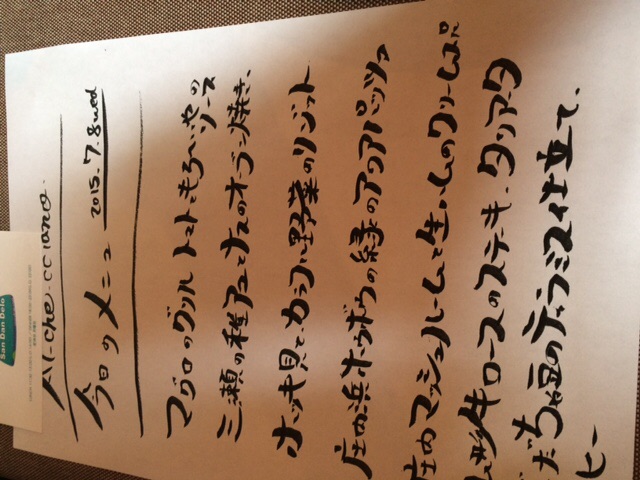 Al-che-cciano.
今日のメニュー 2015.7.8 wed
マグロのグリル トマトともろへいやの
ソース
三瀬の稚アユとナスのオーブン焼き、
ホッキ貝とカラフル野菜のリゾット
庄内浜ホウボウの緑のアクアパッツァ
庄内マッシュルームと生ハムのクリームスープ
山形牛ロースのステーキ、タリアータ
だだちゃ豆のティラミス仕立て、
ヒー
San Dan Delo